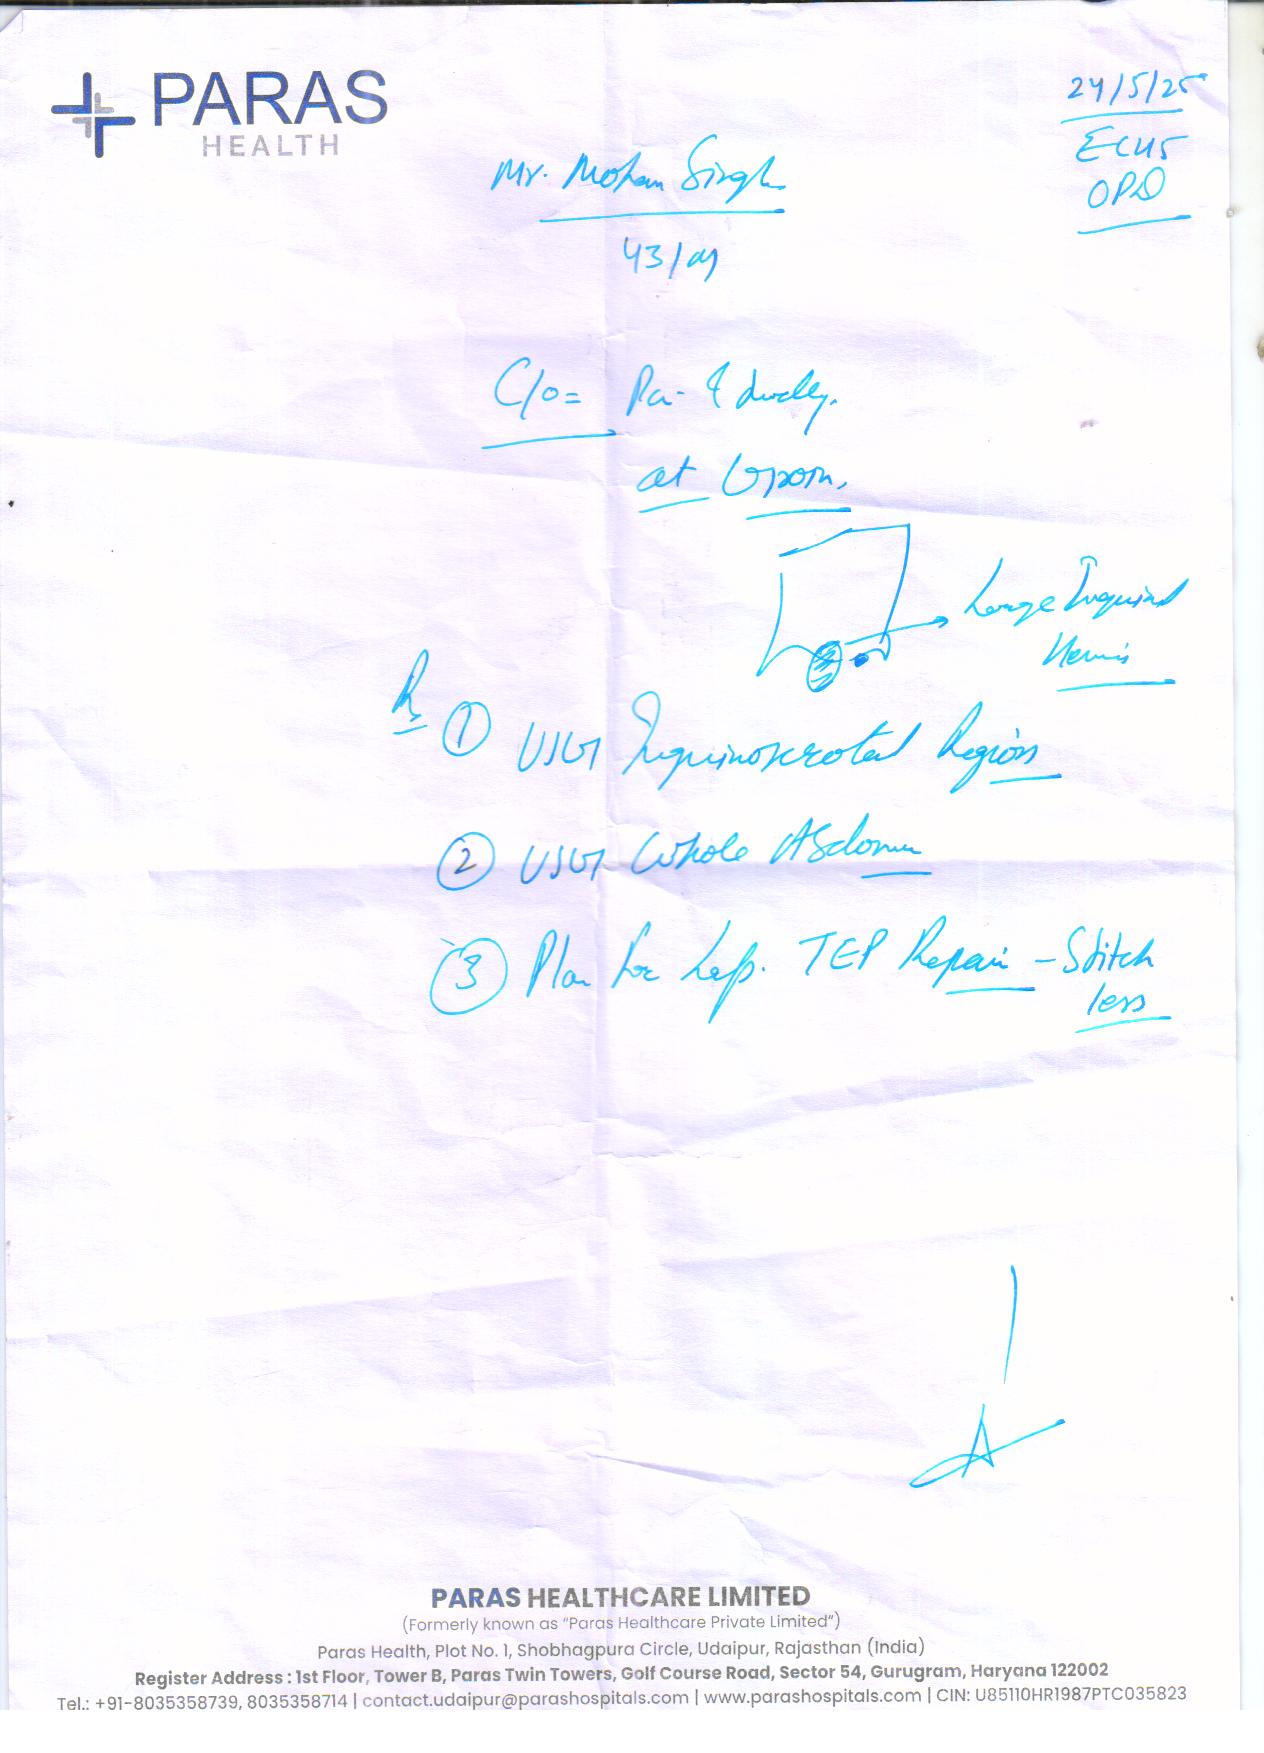 PARAS
HEALTH
24/5/25
ECHS
OPD
Mr. Mohan Singh
43/M
C/o = Pain & swelling
at Groin.
Large Inguinal
Hernia
Rx
① USG Inguinoscrotal Region
② USG Whole Abdomen
③ Plan for Lap. TEP Repair - Stitch
less
PARAS HEALTHCARE LIMITED
(Formerly known as "Paras Healthcare Private Limited")
Paras Health, Plot No. 1, Shobhagpura Circle, Udaipur, Rajasthan (India)
Register Address : 1st Floor, Tower B, Paras Twin Towers, Golf Course Road, Sector 54, Gurugram, Haryana 122002
Tel.: +91-8035358739, 8035358714 | contact.udaipur@parashospitals.com | www.parashospitals.com | CIN: U85110HR1987PTC035823